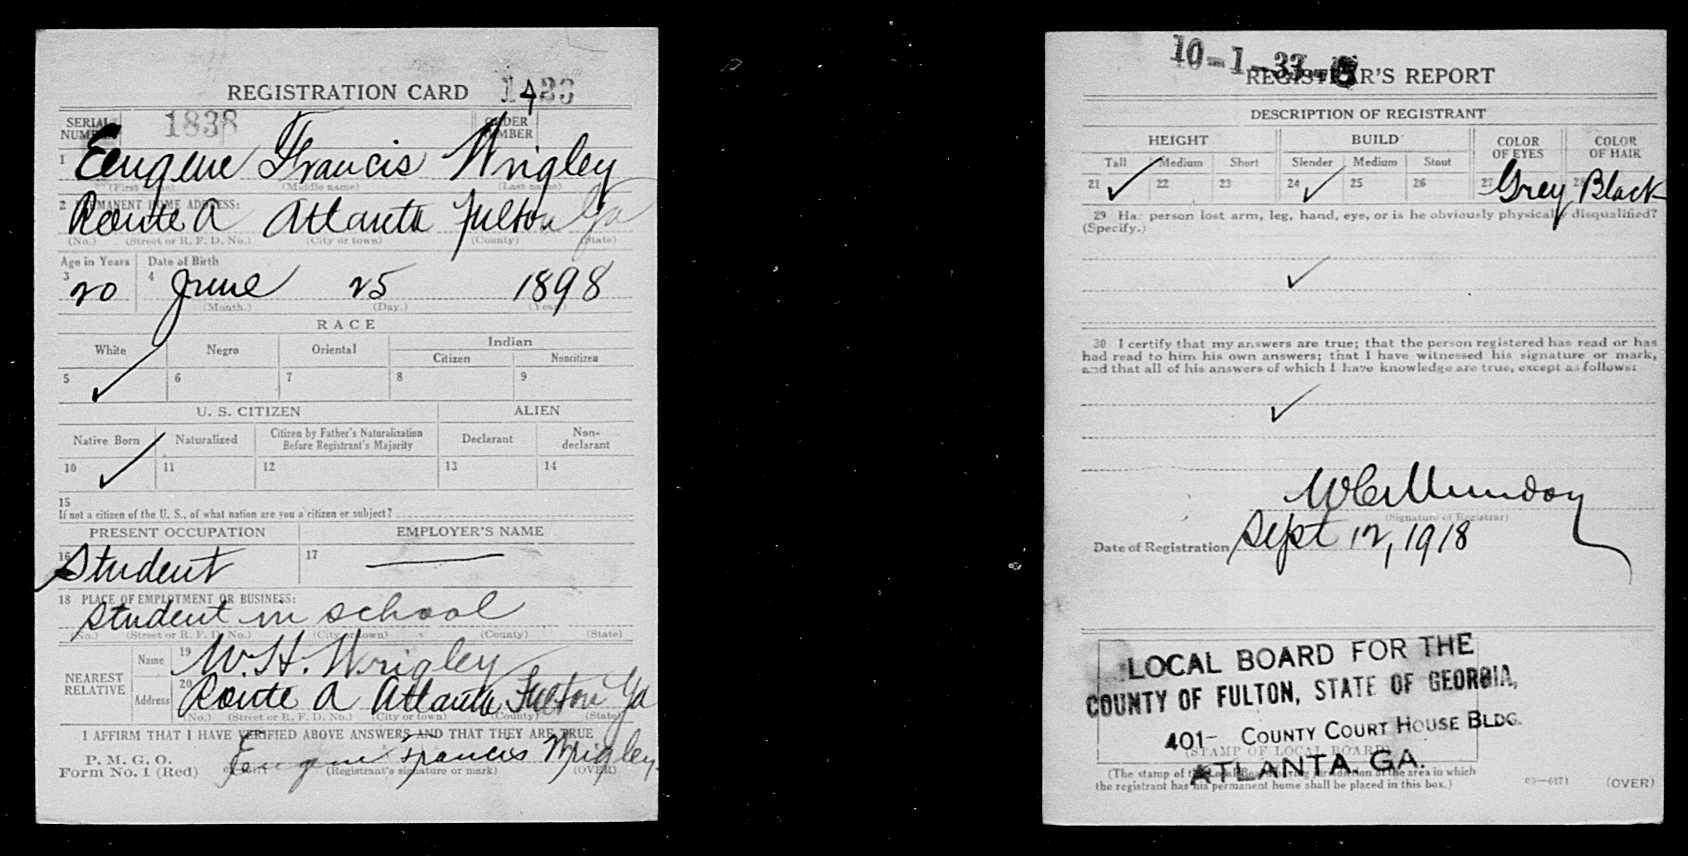 REGISTRATION CARD
SERIAL NUMBER 1838 ORDER NUMBER
1 Eeugene Francis Wrigley
(First name) (Middle name) (Last name)
2 PERMANENT HOME ADDRESS:
Route A Atlanta Fulton Ga
(No.) (Street or R. F. D. No.) (City or town) (County) (State)
Age in Years Date of Birth
3 20 4 June 25 1898
(Month.) (Day.) (Year)
RACE
White Negro Oriental Indian
Citizen Noncitizen
5 ✓ 6 7 8 9
U. S. CITIZEN ALIEN
Native Born Naturalized Citizen by Father's Naturalization Before Registrant's Majority Declarant Non-declarant
10 ✓ 11 12 13 14
15
If not a citizen of the U. S., of what nation are you a citizen or subject?
PRESENT OCCUPATION EMPLOYER'S NAME
16 Student 17 —
18 PLACE OF EMPLOYMENT OR BUSINESS:
Student in school
(No.) (Street or R. F. D. No.) (City or town) (County) (State)
NEAREST RELATIVE Name 19 W. H. Wrigley
Address 20 Route A Atlanta Fulton Ga
(No.) (Street or R. F. D. No.) (City or town) (County) (State)
I AFFIRM THAT I HAVE VERIFIED ABOVE ANSWERS AND THAT THEY ARE TRUE
P. M. G. O.
Form No. 1 (Red) Eugene Francis Wrigley
(Registrant's signature or mark) (OVER)
10-1-33-
REGISTRAR'S REPORT
DESCRIPTION OF REGISTRANT
HEIGHT BUILD COLOR OF EYES COLOR OF HAIR
Tall Medium Short Slender Medium Stout
21 ✓ 22 23 24 ✓ 25 26 27 Grey 28 Black
29 Has person lost arm, leg, hand, eye, or is he obviously physically disqualified?
(Specify.)
✓
30 I certify that my answers are true; that the person registered has read or has
had read to him his own answers; that I have witnessed his signature or mark,
and that all of his answers of which I have knowledge are true, except as follows:
✓
Munday
(Signature of Registrar)
Date of Registration Sept 12, 1918
LOCAL BOARD FOR THE
COUNTY OF FULTON, STATE OF GEORGIA,
401- COUNTY COURT HOUSE BLDG.
(STAMP OF LOCAL BOARD)
ATLANTA, GA.
(The stamp of the Local Board having jurisdiction of the area in which
the registrant has his permanent home shall be placed in this box.)
03—6171 (OVER)